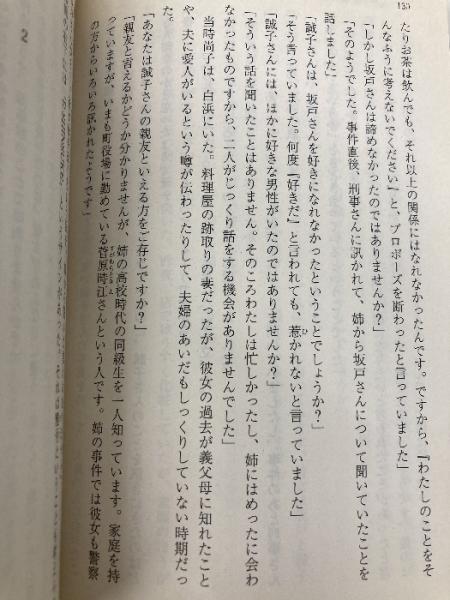 130
たりお茶は飲んでも、それ以上の関係にはなれなかったんです。ですから、『わたしのことをそ
んなふうに考えないでください』と、プロポーズを断わったと言っていました」
「しかし坂戸さんは諦めなかったのではありませんか？」
「そのようでした。事件直後、刑事さんに訊かれて、姉から坂戸さんについて聞いていたことを
話しました」
「誠子さんは、坂戸さんを好きになれなかったということでしょうか？」
「そう言っていました。何度『好きだ』と言われても、惹かれないと言っていました」
「誠子さんには、ほかに好きな男性がいたのではありませんか？」
「そういう話を聞いたことはありません。そのころわたしは忙しかったし、姉にはめったに会わ
なかったものですから、二人がじっくり話をする機会がありませんでした」
当時尚子は、白浜にいた。料理屋の跡取りの妻だったが、彼女の過去が義父母に知れたこと
や、夫に愛人がいるという噂が伝わったりして、夫婦のあいだもしっくりしていない時期だっ
た。
「あなたは誠子さんの親友といえる方をご存じですか？」
「親友と言えるかどうか分かりませんが、姉の高校時代の同級生を一人知っています。家庭を持
っていますが、いまも町役場に勤めている菅原時江さんという人です。姉の事件では彼女も警察
の方からいろいろ訊かれたそうです」
2